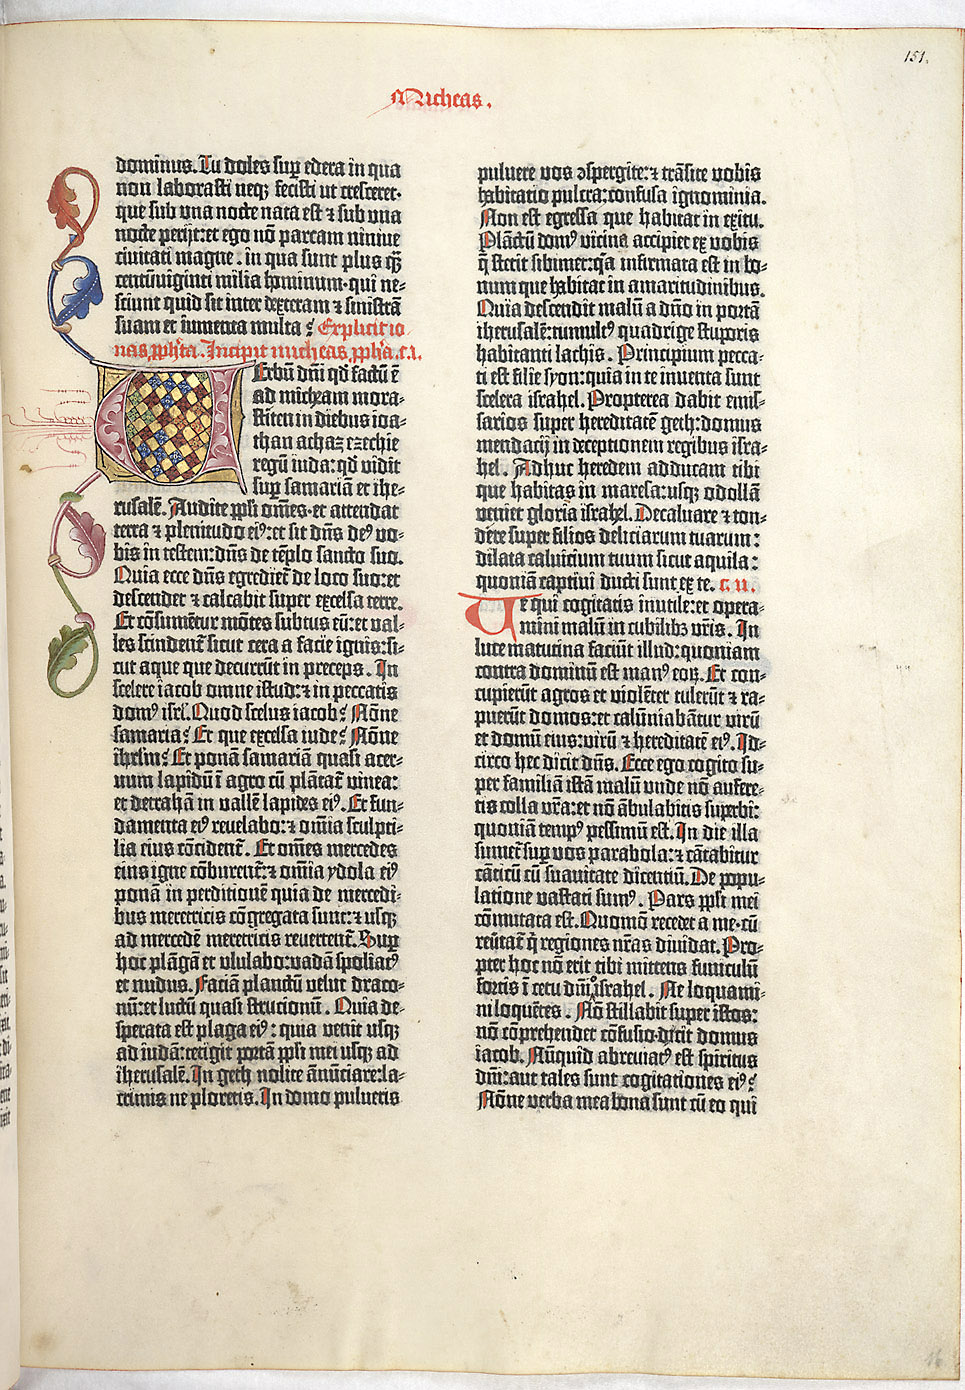 151.
Micheas.
dominus. Tu doles sup̱ edera in qua
non laborasti neqꝫ fecisti ut cresceret·
que sub una nocte nata est ⁊ sub una
nocte perijt: et ego nō parcam ninive
civitati magne· in qua sunt plus q̄ꝫ
centūviginti milia hominum· qui ne-
sciunt quid sit inter dexteram ⁊ sinistrā
suam et iumenta multa? Explicit io-
nas, ꝓph̄ta. Incipit micheas, ꝓph̄a. c.i.
Verbū dn̄i qd̄ factū ē
ad micheam mora-
stiten in diebus ioa-
than achaz ezechie
regū iuda: qd̄ vidit
sup̱ samariā et ihe-
rusalē. Audite ppl̄i om̄es· et attendat
terra ⁊ plenitudo eiꝰ: et sit dn̄s deꝰ vo-
bis in testem: dn̄s de tēplo sancto suo.
Quia ecce dn̄s egrediet̄ de loco suo: et
descendet ⁊ calcabit super excelsa terre.
Et cōsumēt̄ur mōtes subtus eū: et val-
les scindent̄ sicut cera a facie ignis: si-
cut aque que decurrūt in preceps. In
scelere iacob omne istud: ⁊ in peccatis
domꝰ isrl̄. Quod scelus iacob? Nōne
samaria? Et que excelsa iude? Nōne
ihrlm̄? Et ponā samariā quasi acer-
vum lapidū ī agro cū plātat̄ vinea:
et detrahā in vallē lapides eiꝰ. Et fun-
damenta eiꝰ revelabo: ⁊ om̄ia sculpti-
lia eius cōcident̄. Et om̄es mercedes
eius igne cōburent̄: ⁊ om̄ia ydola eiꝰ
ponā in perditionē quia de mercedi-
bus meretricis cōgregata sunt: ⁊ usqꝫ
ad mercedē meretricis revertent̄. Sup̱
hoc plāgā et ululabo: vadā spoliatꝰ
et nudus. Faciā planctū velut draco-
nū: et luctū quasi strucionū. Quia de-
sperata est plaga eiꝰ: quia venit usqꝫ
ad iudā: tetigit portā ppl̄i mei usqꝫ ad
iherusalē. In geth nolite ānūciare: la-
crimis ne ploretis. In domo pulveris
pulvere vos ↄspergite: ⁊ trāsite vobis
habitatio pulcra: confusa ignominia.
Non est egressa que habitat in exitu.
Plāctū domꝰ vicina accipiet ex vobis
q̄ stetit sibimet: qa̅ infirmata est in bo-
num que habitat in amaritudinibus.
Quia descendit malū a dn̄o in portā
iherusalē: tumultꝰ quadrige stuporis
habitanti lachis. Principium pecca-
ti est filie syon: quia in te inventa sunt
scelera israhel. Propterea dabit emis-
sarios super hereditatē geth: domus
mendacij in deceptionem regibus isra-
hel. Adhuc heredem adducam tibi
que habitas in maresa: usqꝫ odollā
veniet gloria israhel. Decaluare ⁊ ton-
dere super filios deliciarum tuarum:
dilata calvicium tuum sicut aquila:
quoniā captivi ducti sunt ex te. c. ii.
Ve qui cogitatis inutile: et opera-
mini malū in cubilibꝫ vr̄is. In
luce matutina faciūt illud: quoniam
contra dominū est manꝰ eoꝝ. Et con-
cupierūt agros et violēter tulerūt ⁊ ra-
puerūt domos: et calūniabātur virū
et domū eius: virū ⁊ hereditatē eiꝰ. Id-
circo hec dicit dn̄s. Ecce ego cogito su-
per familiā istā malū unde nō aufere-
tis colla vr̄a: et nō ābulabitis superbi:
quoniā tempꝰ pessimū est. In die illa
sumet̄ sup̱ vos parabola: ⁊ cātabitur
cāticū cū suavitate dicentiū. De popu-
latione vastati sumꝰ. Pars ppl̄i mei
cōmutata est. Quomō recedet a me· cū
reūtat̄ q̄ regiones nr̄as dividat. Pro-
pter hoc nō erit tibi mittens funiculū
sortis ī cetu dn̄i israhel. Ne loquami-
ni loquētes. Nō stillabit super istos:
nō cōprehendet cōfusio· dicit domus
iacob. Nūquid abreviatꝰ est spiritus
dn̄i: aut tales sunt cogitationes eiꝰ?
Nōne verba mea bona sunt cū eo qui